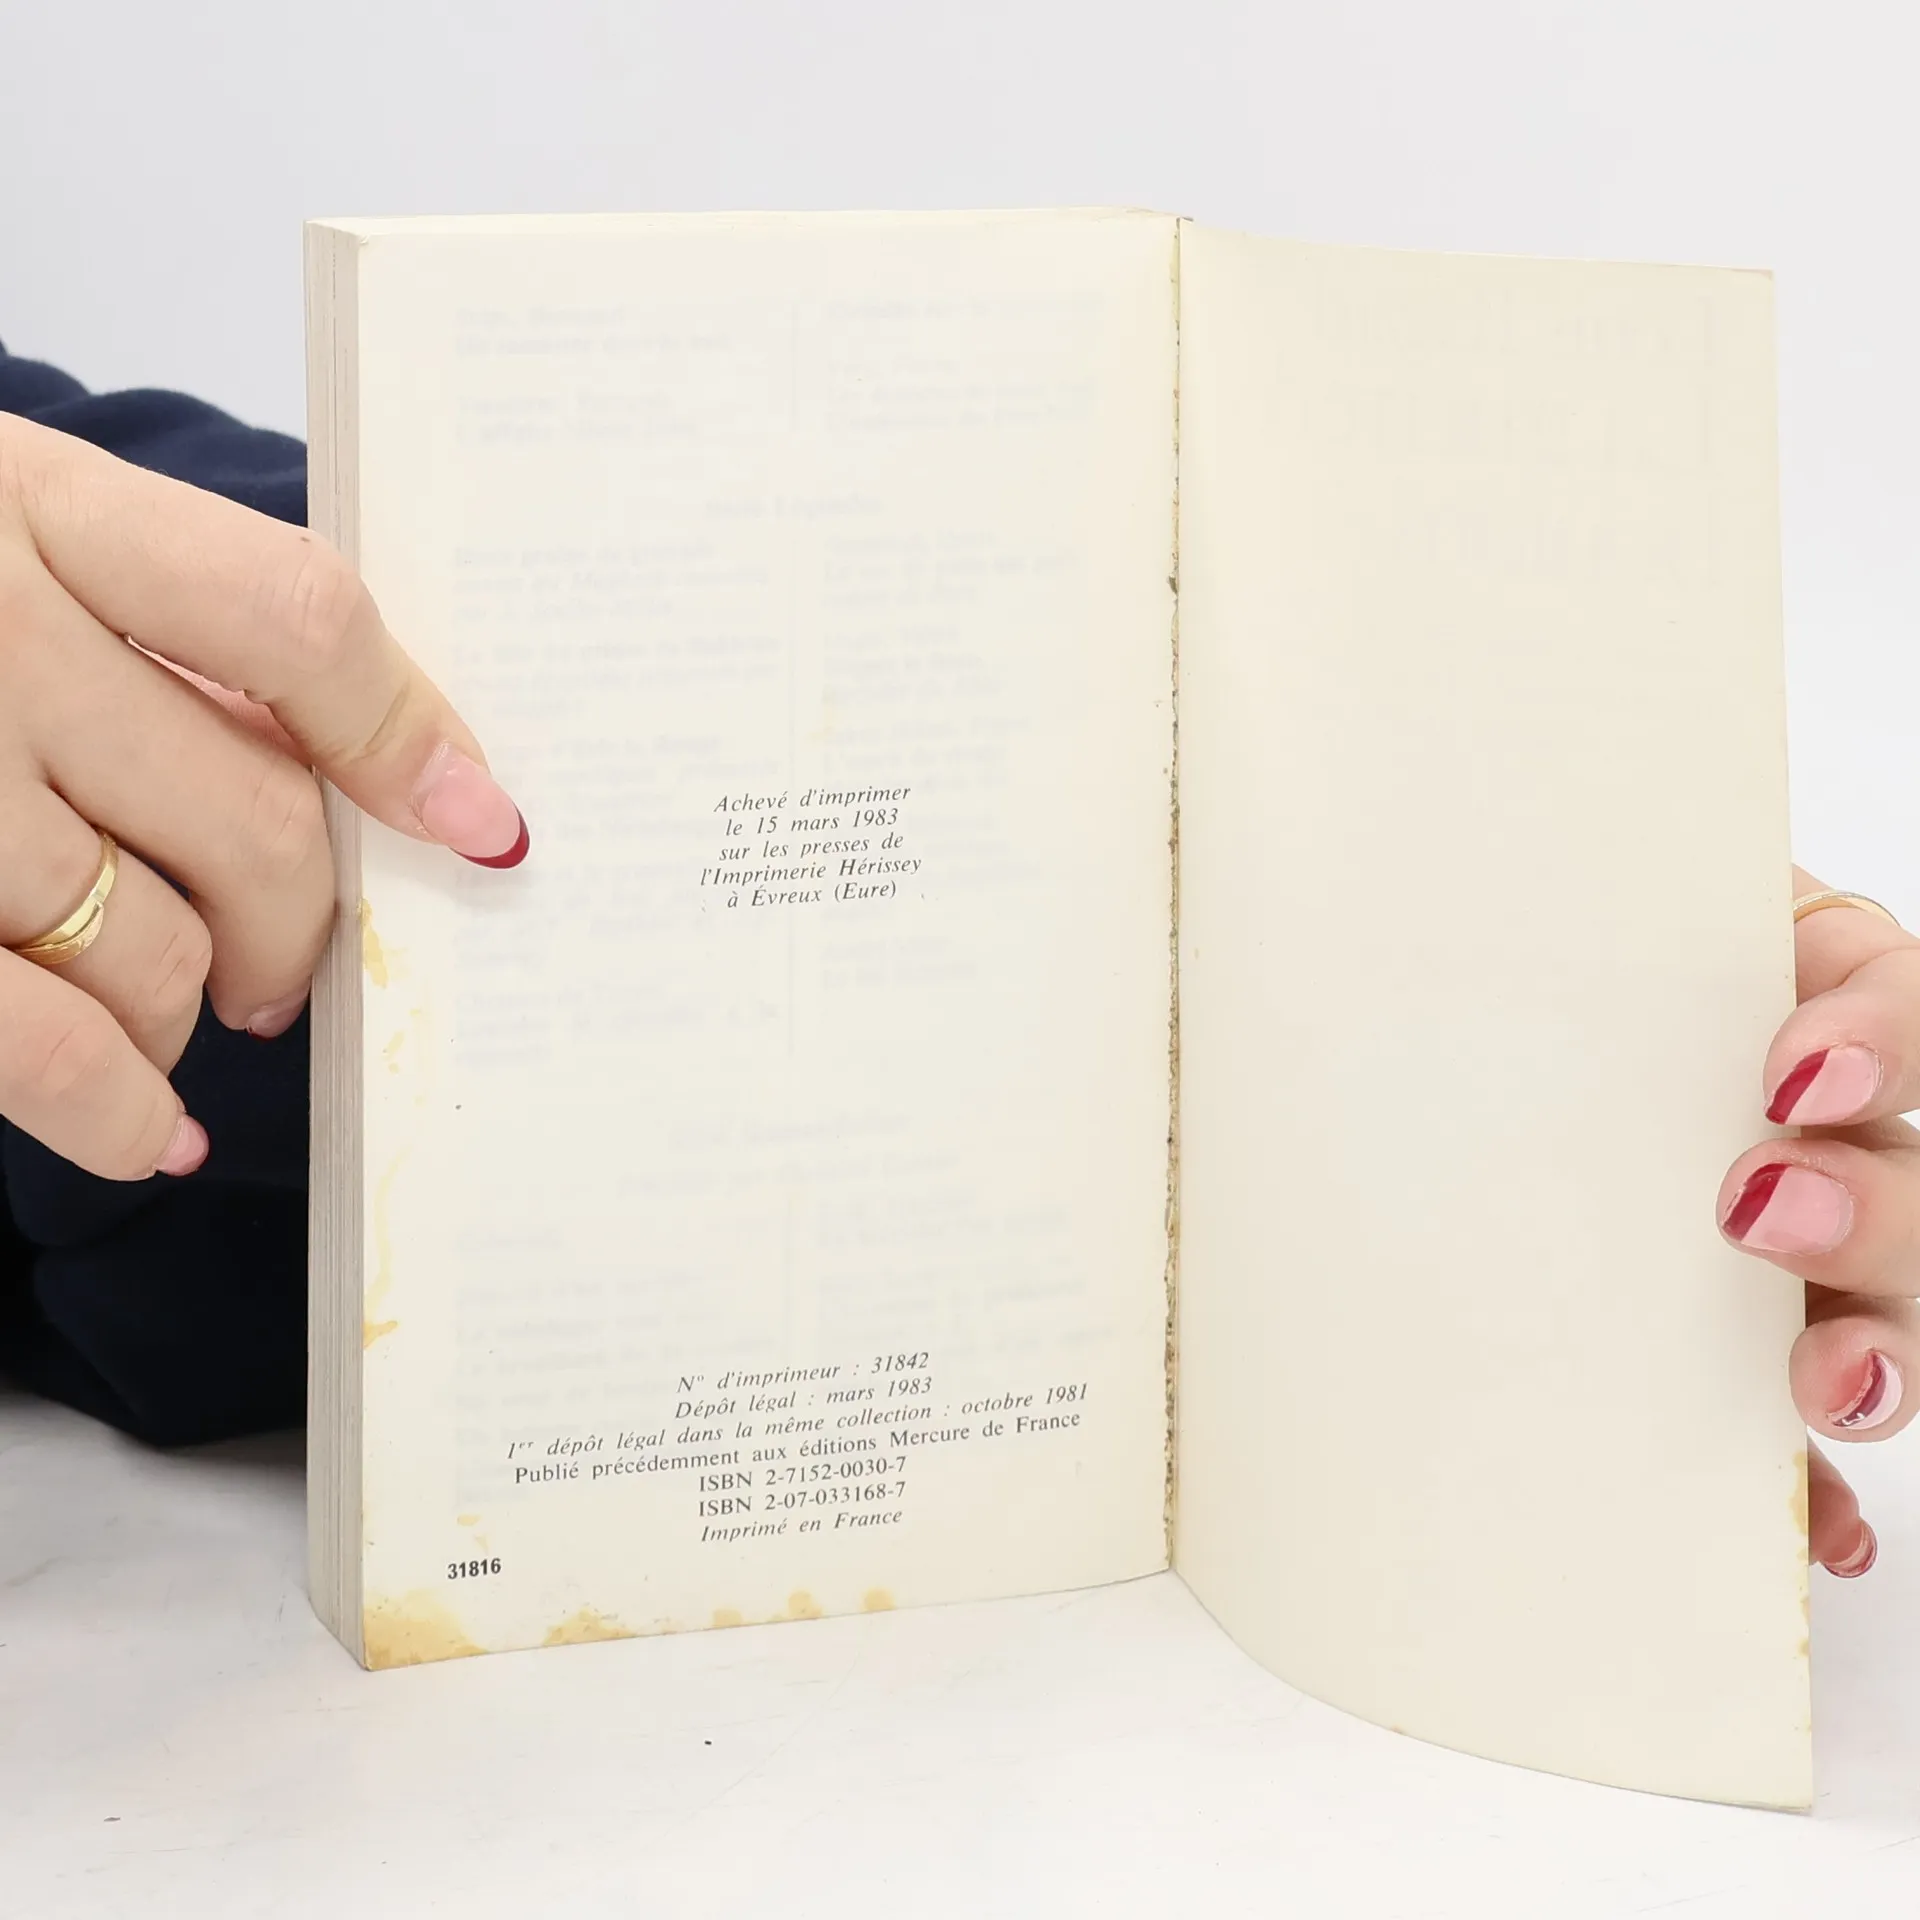 Achevé d'imprimer
le 15 mars 1983
sur les presses de
l'Imprimerie Hérissey
à Évreux (Eure)
N° d'imprimeur : 31842
Dépôt légal : mars 1983
1er dépôt légal dans la même collection : octobre 1981
Publié précédemment aux éditions Mercure de France
ISBN 2-7152-0030-7
ISBN 2-07-033168-7
Imprimé en France
31816